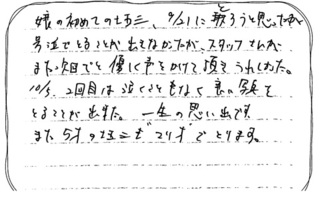 娘の初めての七五三、9/21に と 撮ろうと思ったが
号泣でとることが出来なかったが、スタッフさんが
また次回でと優しく声をかけて頂きうれしかった。
10/5、2回目は泣くこともなく良い写真を
とることが出来た。一生の思い出です。
また5才の七五三も"マリオ"でとります。